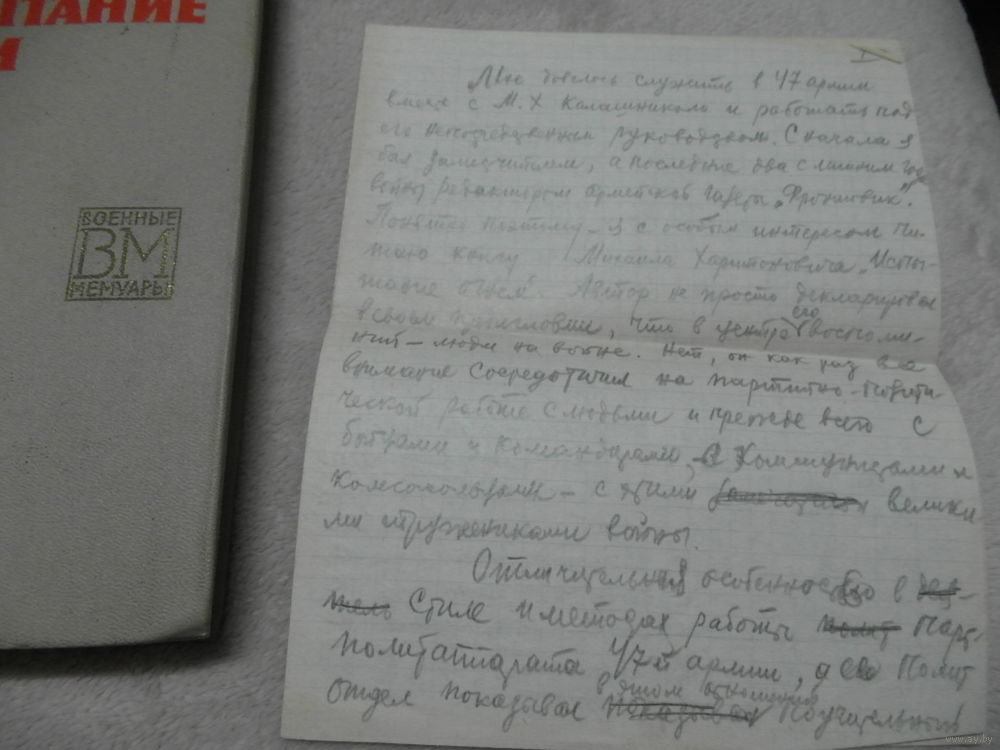 ПАНИЕ
ВОЕННЫЕ
ВМ
МЕМУАРЫ
I
Мне довелось служить в 47 армии
вместе с М. Х Калашником и работать под
его непосредственным руководством. Сначала я
был заместителем, а последние два с лишним года
войны редактором армейской газеты „Фронтовик".
Понятно поэтому – я с особым интересом чи-
таю книгу Михаила Харитоновича „Испы-
тание огнем". Автор не просто декларировал
его
в своем предисловии, что в центре воспоми-
ний – люди на войне. Нет, он как раз все
внимание сосредоточил на партийно-полити-
ческой работе с людьми и прежде всего с
бойцами и командирами, с коммунистами и
комсомольцами – с этими велики
ми тружениками войны.
Отличительной особенностью в
стиле и методах работы полит парт.
политаппарата 47-й армии, а его Полит
в этом отношении
отдел показывал показывал поучительный
www.ay.by